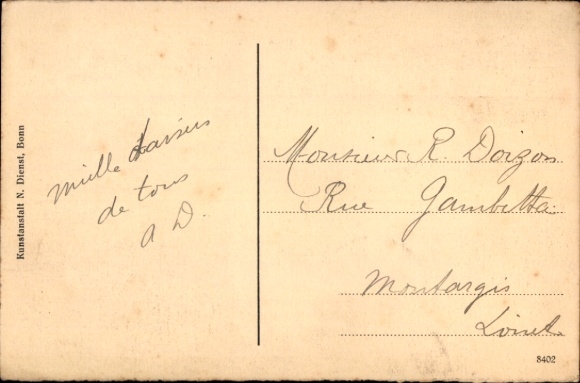 Kunstanstalt N. Dienst, Bonn
mille baisers
de tous
A D.
Monsieur R. Doizon
Rue Gambetta
Montargis
Loiret
8402